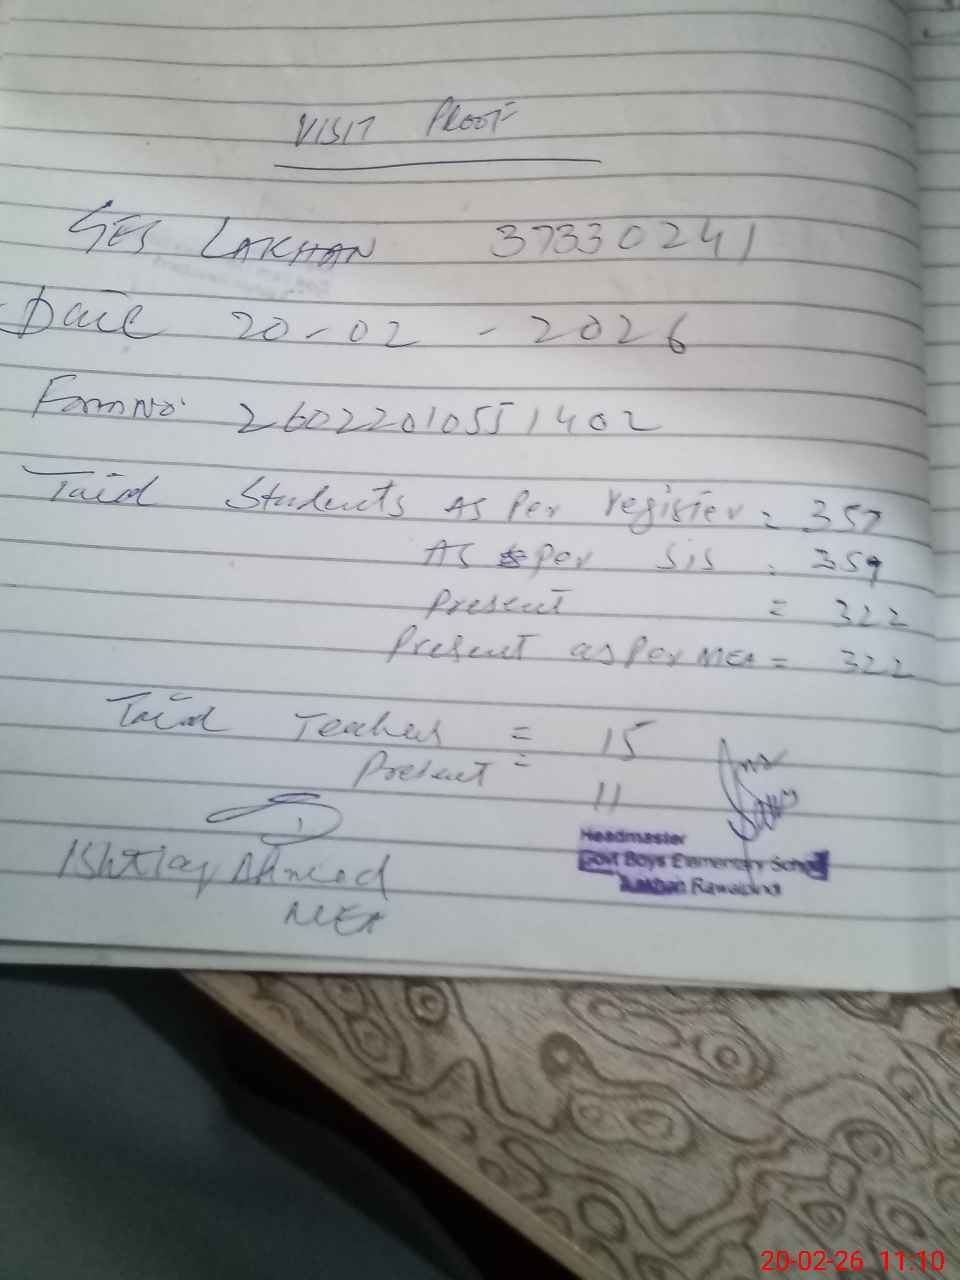 VISIT PROOF
GES LAKHAN 37330241
Date 20-02-2026
Form No. 26022010551402
Total Students As Per register = 357
As per SIS = 359
Present = 322
Present as Per MEA = 322
Total Teachers = 15
Present = 11
Headmaster
Govt Boys Elementary School
Lakhan Rawalpindi
Ishtiaq Ahmed
MEA
20-02-26 11:10